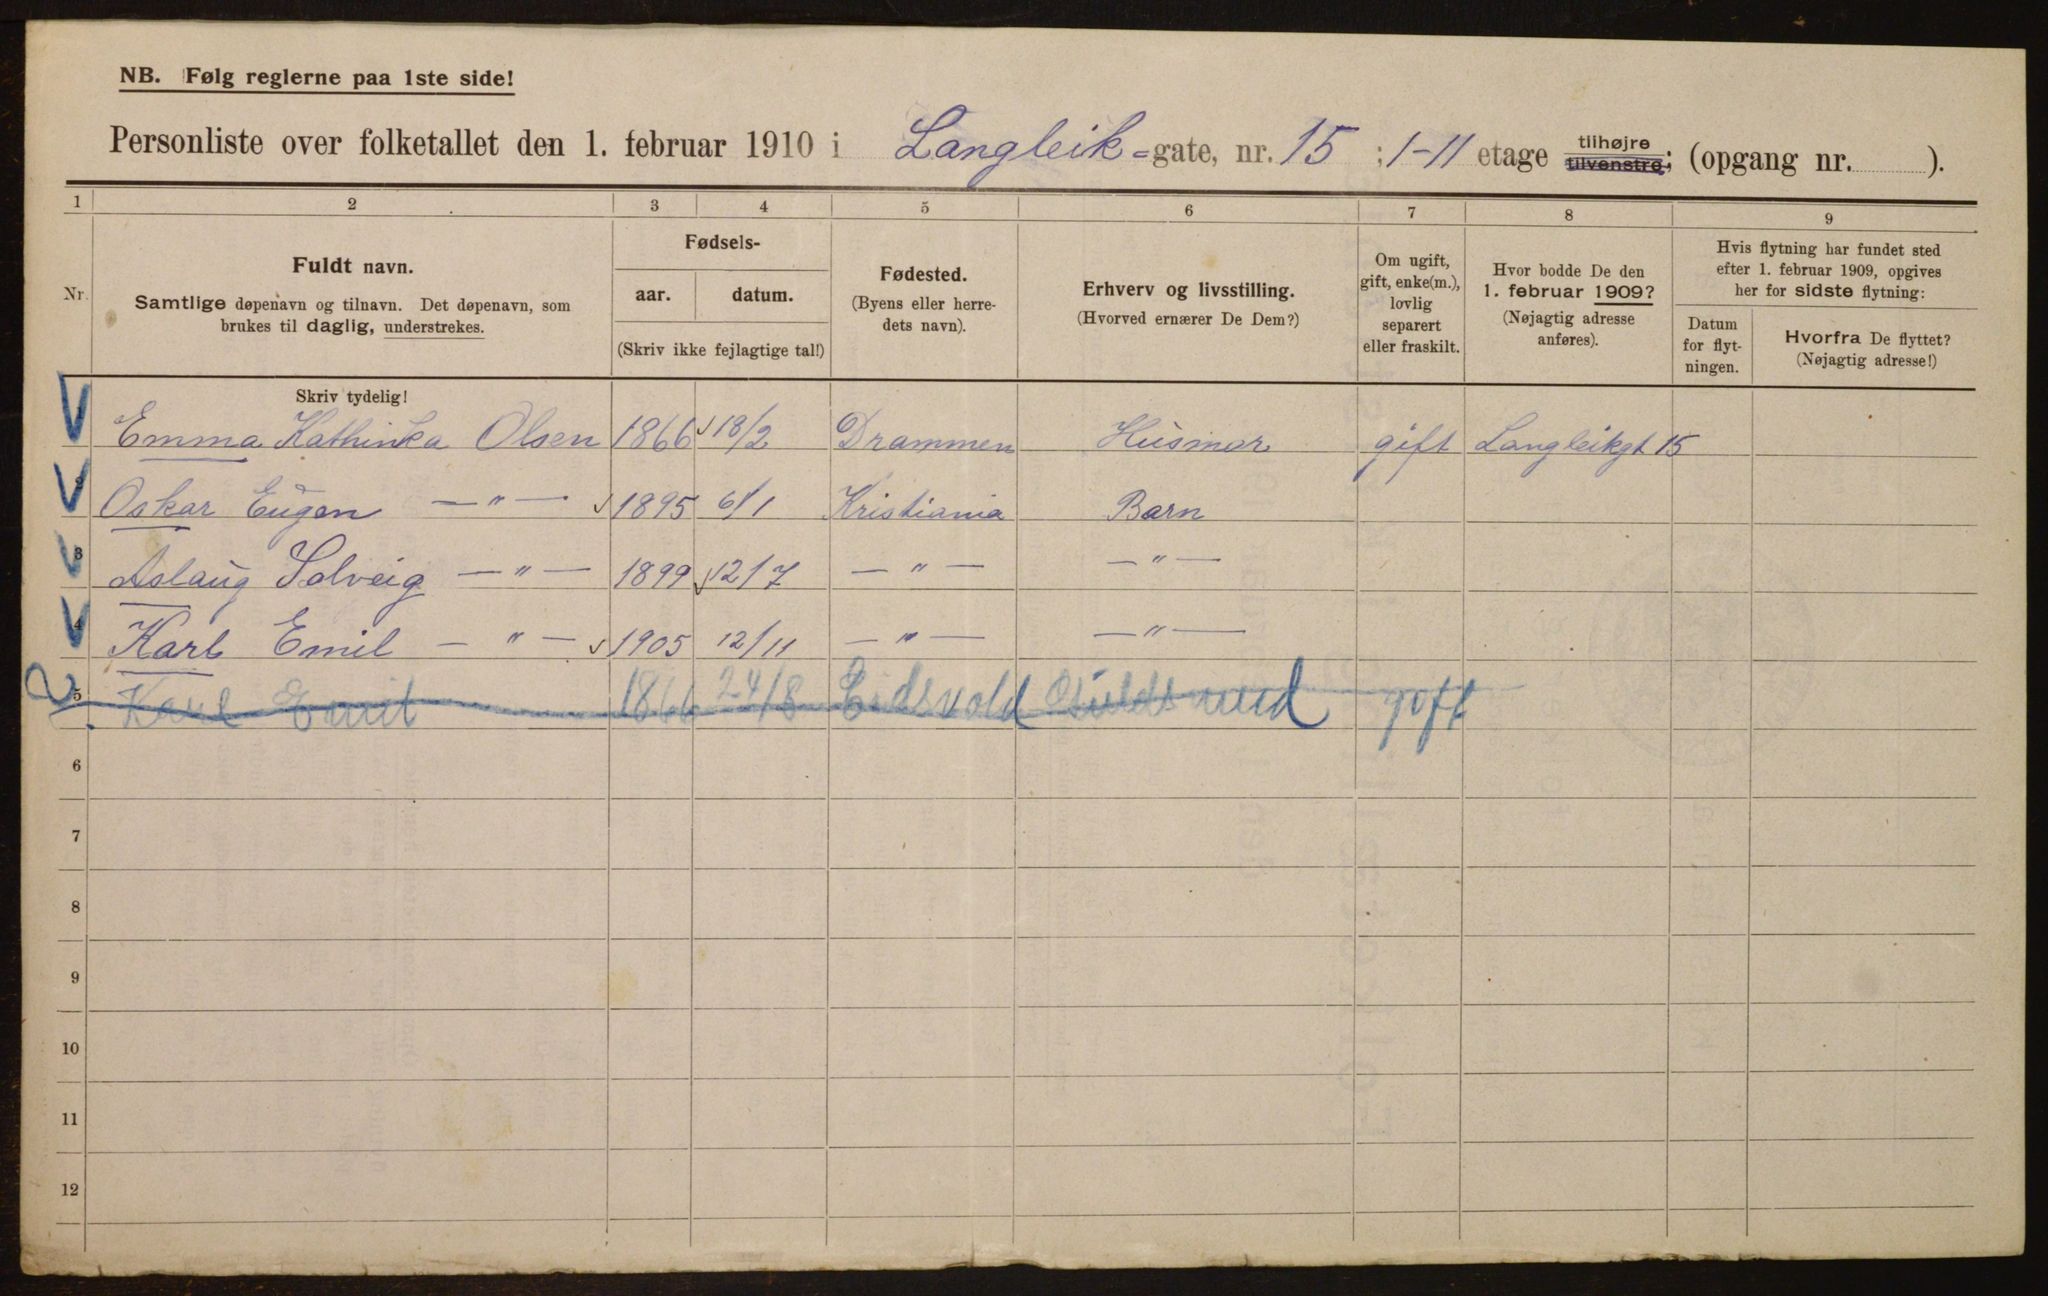 NB. Følg reglerne paa 1ste side!
Personliste over folketallet den 1. februar 1910 i Langleik=gate, nr. 15 ; 1-11 etage tilhøjre tilvenstre; (opgang nr. ).
1 2 3 4 5 6 7 8 9
Nr.
Fuldt navn.
Samtlige døpenavn og tilnavn. Det døpenavn, som
brukes til daglig, understrekes.
Fødsels-
aar. datum.
(Skriv ikke fejlagtige tal!)
Fødested.
(Byens eller herre-
dets navn).
Erhverv og livsstilling.
(Hvorved ernærer De Dem?)
Om ugift,
gift, enke(m.),
lovlig
separert
eller fraskilt.
Hvor bodde De den
1. februar 1909?
(Nøjagtig adresse
anføres).
Hvis flytning har fundet sted
efter 1. februar 1909, opgives
her for sidste flytning:
Datum
for flyt-
ningen.
Hvorfra De flyttet?
(Nøjagtig adresse!)
Skriv tydelig!
1 Emma Kathinka Olsen 1866 18/2 Drammen Husmor gift Langleikgt 15
2 Oskar Eugen — " — 1895 6/1 Kristiania Barn
3 Aslaug Solveig — " — 1899 12/7 — " — — " —
4 Karl Emil — " — 1905 12/11 — " — — " —
5 Karl Emil 1866 24/8 Eidsvold Guldsmed gift
6
7
8
9
10
11
12